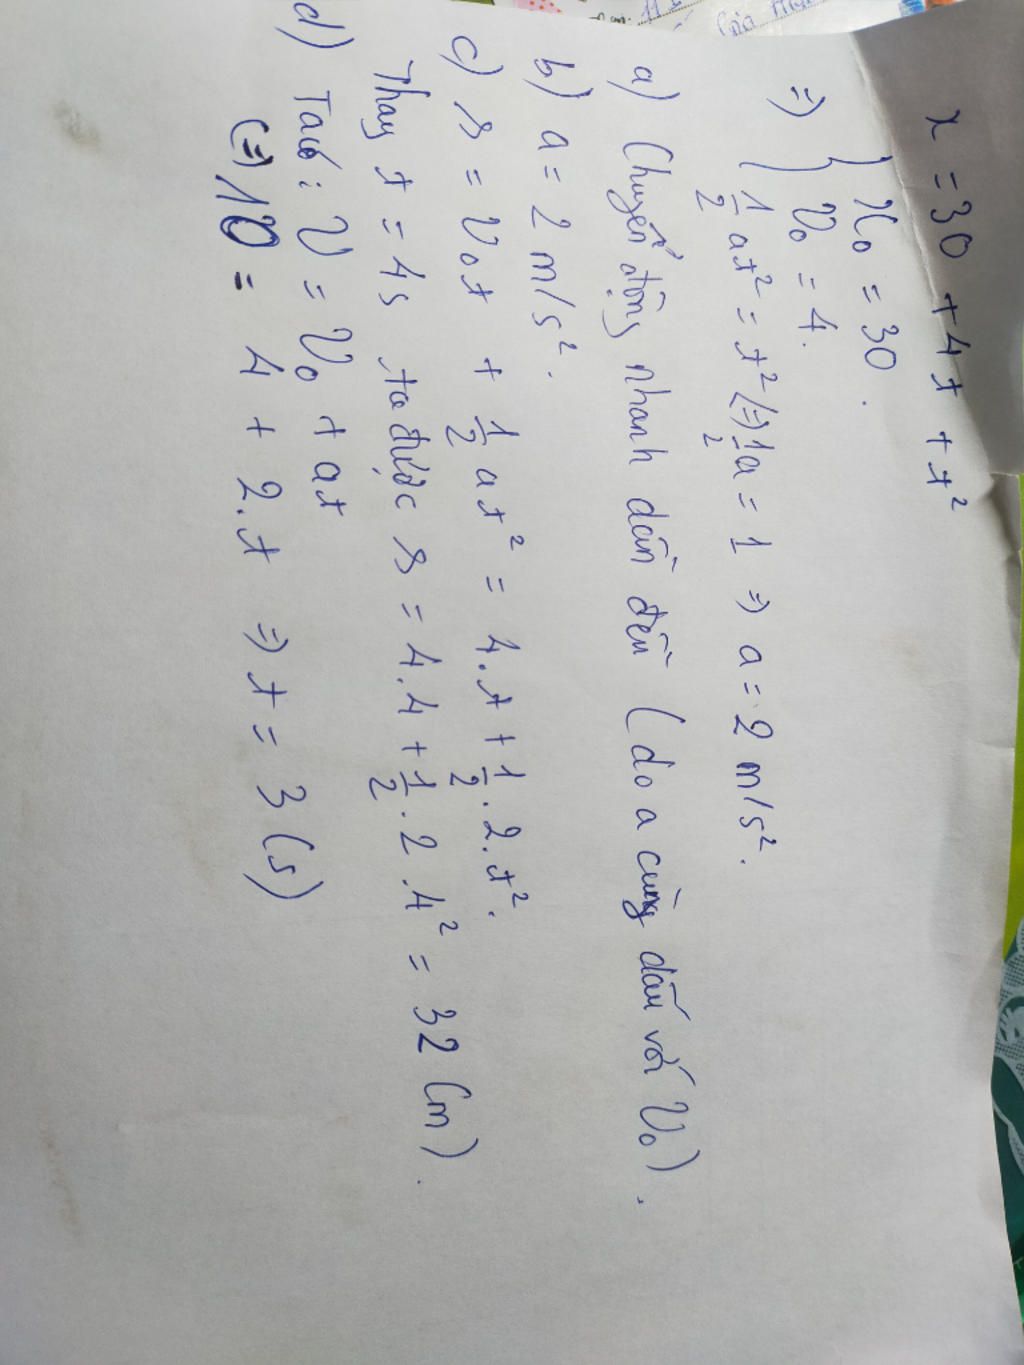 x = 30 + 4t + t²
=> { x₀ = 30.
v₀ = 4.
1/2 at² = t² (=) 1/2 a = 1 => a = 2 m/s².
a) Chuyển động nhanh dần đều (do a cùng dấu với v₀).
b) a = 2 m/s².
c) s = v₀t + 1/2 at² = 4.t + 1/2 . 2.t².
Thay t = 4s ta được s = 4.4 + 1/2 . 2 . 4² = 32 (m).
d) Ta có : v = v₀ + at
(=) 10 = 4 + 2.t => t = 3 (s)